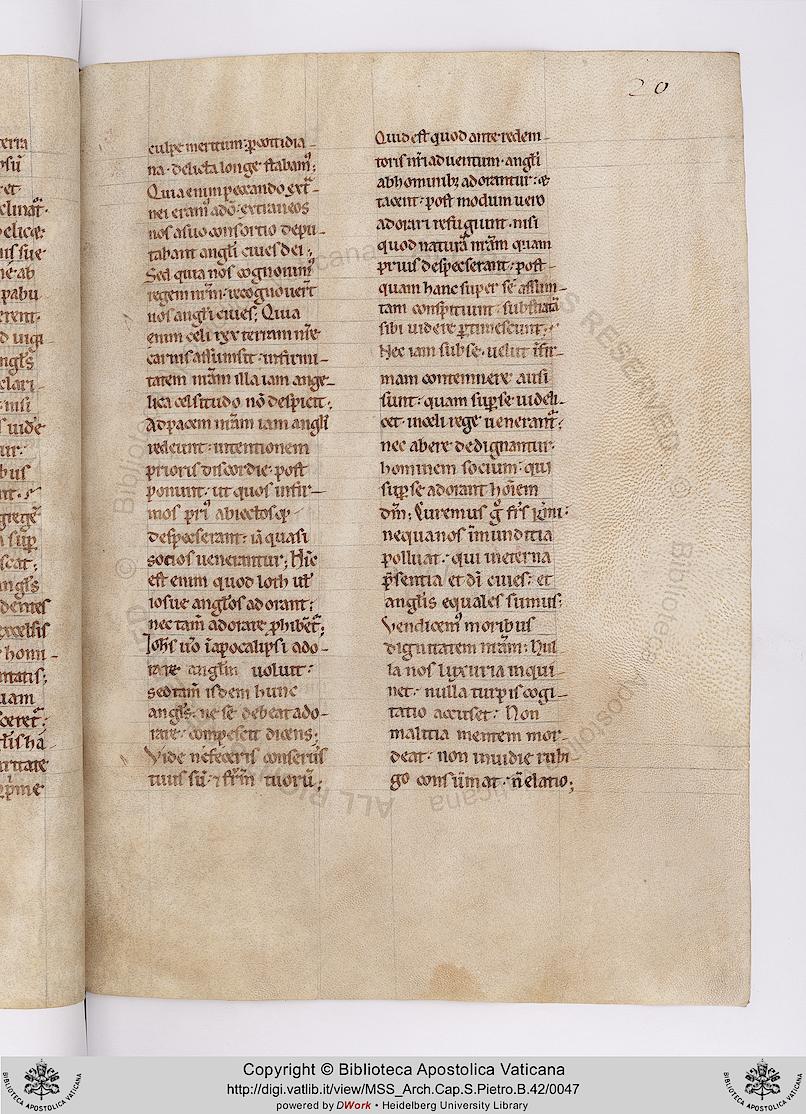 20
terra
et
nis sue
ab
pabu
erent.
uigi
angls
clari-
nisi
uide
bus
angls
dentes
excelsis
homi-
uam
culpe meritum: p cotidia-
na delicta longe stabam᷒;
Quia enim peccando ext̄-
nei eram᷒ a dō: extraneos
nos a suo consortio depu-
tabant angli ciues dei;
Sed quia nos cognouim᷒
regem nr̄m: recognouer̄t
nos angli ciues; Quia
enim celi rex terram nr̄e
carnis assumsit: infirmi-
tatem nr̄am illa iam ange-
lica celsitudo nō despicit;
Ad pacem nr̄am iam angli
redeunt: intentionem
prioris discordie post
ponunt: ut quos infir-
mos pri᷒ abiectos q᷒
despexerant: iā quasi
socios uenerantur; Hīc
est enim quod loth ut̄
iosue anglos adorant;
nec tam̄ adorare phibent᷒;
Iohs̄ u̅o ī apocalipsi ado-
rare anglm̄ uoluit:
sed tam̄ isdem hunc
angls: ne se debeat ado-
rare: compescit dicens;
Vide ne feceris conseru᷒
tuus sū: ⁊ fr̄m tuorū;
Quid est quod ante redem-
toris nr̄i aduentum angli
ab hominibȝ adorantur: et
tacent: post modum uero
adorari refugiunt: nisi
quod naturā nr̄am quam
prius despexerant: post-
quam hanc super se assum-
tam conspiciunt: substratā
sibi uidere ptimescunt;
Nec iam sub se uelut īfir-
mam contemnere ausi
sunt: quam sup se uideli-
cet in celi rege uenerant᷒:
nec abere dedignantur
hominem socium: qui
sup se adorant hōiem
dm̄; Curemus g̊ fr̄s kmi:
ne qua nos īmunditia
polluat: qui in eterna
p̄sentia et dī ciues: et
anglis equales sumus;
Vendicem᷒ moribus
dignitatem nr̄am: nul-
la nos luxuria inqui-
net: nulla turpis cogi-
tatio accuset: Non
malitia mentem mor-
deat: non inuidie rubi-
go consūmat: n̄ elatio;
Copyright © Biblioteca Apostolica Vaticana
http://digi.vatlib.it/view/MSS_Arch.Cap.S.Pietro.B.42/0047
powered by DWork • Heidelberg University Library